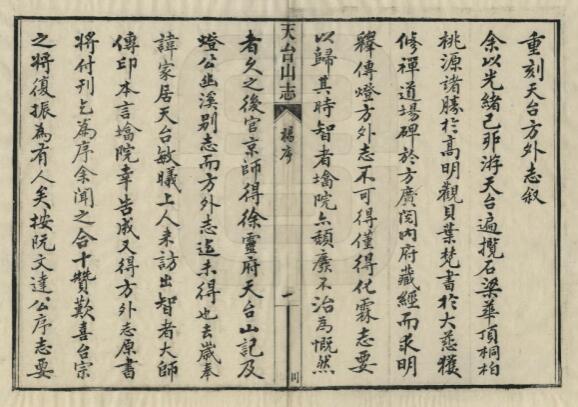 重刻天台方外志叙
余以光緒己卯游天台遍攬石梁華頂桐柏
桃源諸勝於高明觀貝葉梵書於大慈獲
修禪道場碑於方廣閱内府藏經而求明
釋傳燈方外志不可得僅得化霖志要
以歸其時智者塔院亦頹廢不治為慨然
天台山志
楊序
一
者久之後官京師得徐靈府天台山記及
燈公幽溪别志而方外志迄未得也去歲奉
諱家居天台敏曦上人来訪出智者大師
傳印本言塔院幸告成又得方外志原書
将付刊乞為序余聞之合十贊歎喜台宗
之将復振為有人矣按阮文達公序志要